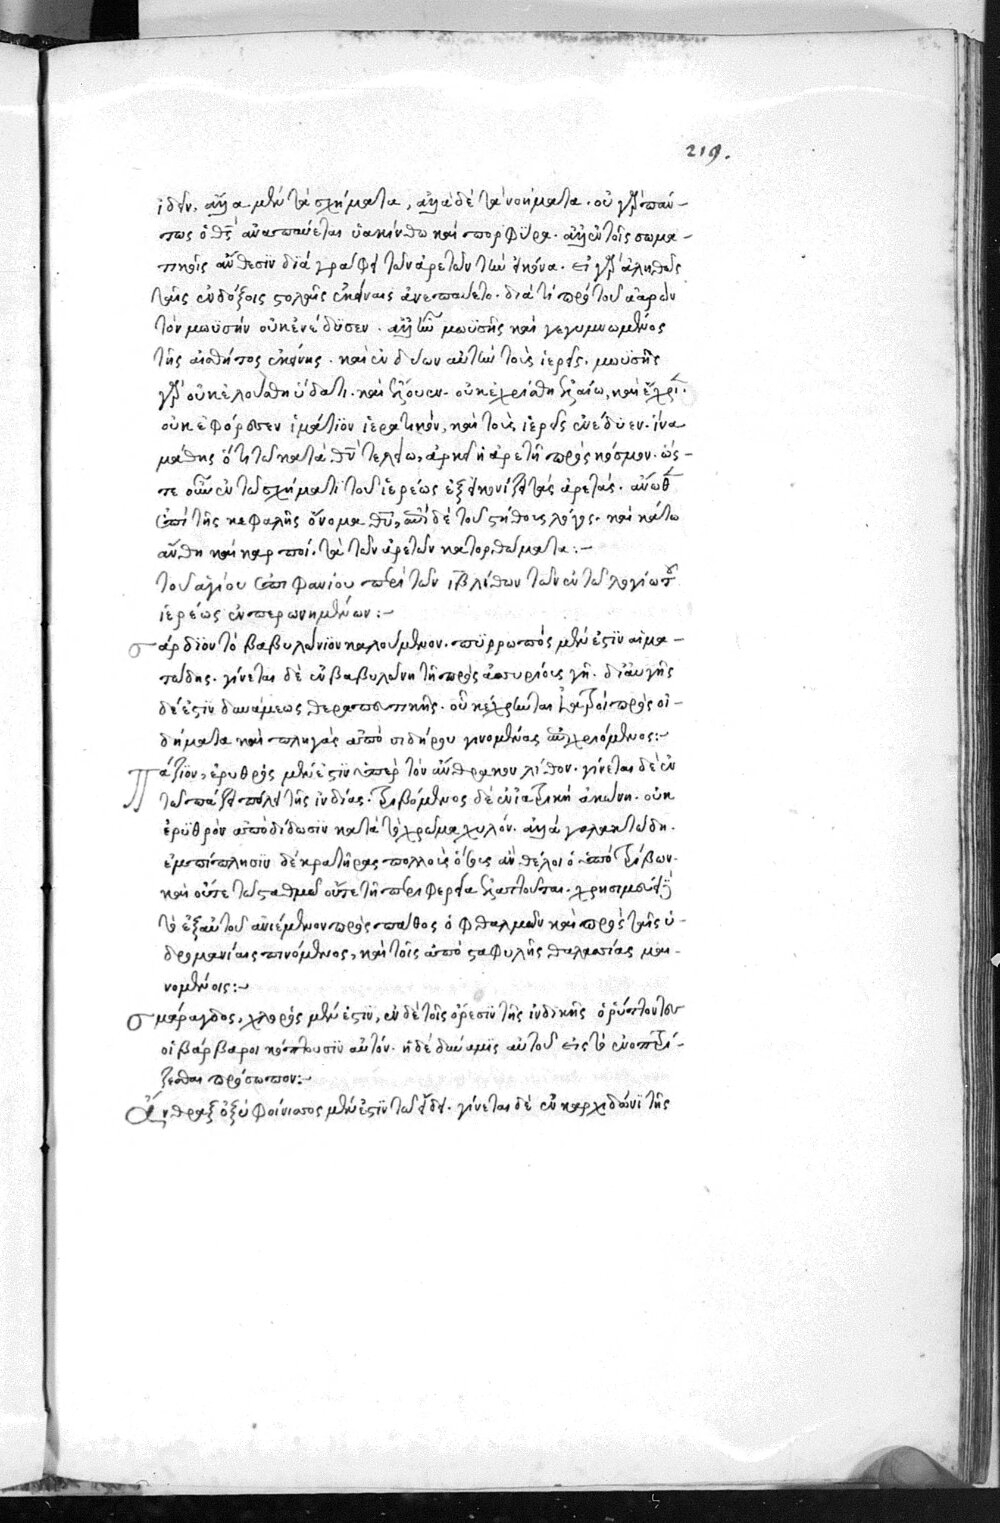 219.
ἰδεῖν, ἄλλα μὲν τὰ σχήματα, ἄλλα δὲ τὰ νοήματα. οὐ γὰρ πάν-
τως ὁ θς ἀναπαύεται ὑακίνθω καὶ πορφύρα. ἀλλ' ἐν τοῖς σωμα-
τικοῖς ἄνθεσιν διαγράφει τῶν ἀρετῶν τὴν εἰκόνα. εἰ γὰρ ἀληθῶς
ταῖς ἐνδόξοις στολαῖς ἐκείναις ἀνεπαύετο. διατί πρὸ τοῦ ἀαρὼν
τὸν μωϋσῆν οὐκ ἐνέδυσεν. ἀλλ' ἦν μωϋσῆς καὶ γεγυμνωμένος
τῆς αἰσθήτος ἐκείνης. καὶ ἐνδύων αὐτὴν τοὺς ἱερεῖς. μωϋσῆς
γὰρ οὐκ ἐλούσθη ὕδατι. καὶ ἔλουεν. οὐκ ἐχρίσθη ἐλαίω, καὶ ἔχρι.
οὐκ ἐφόρεσεν ἱμάτιον ἱερατικόν, καὶ τοὺς ἱερεῖς ἐνέδυεν. ἵνα
μάθης ὅτι τῶ κατὰ θν τελείω, ἀρκεῖ ἡ ἀρετὴ πρὸς κόσμον. ὥς-
περ οὖν ἐν τῶ σχήματι τοῦ ἱερέως ἐξεικονίζει τὰς ἀρετάς. ἄνωθεν
ἐπὶ τῆς κεφαλῆς ὄνομα θυ, ἐπὶ δὲ τοῦ στήθους λόγος. καὶ κάτω
ἄνθη καὶ καρποί. τὰ τῶν ἀρετῶν κατορθώματα:-
τοῦ ἁγίου ἐπιφανίου περὶ τῶν ιβ λίθων τῶν ἐν τῶ λογίω τοῦ
ἱερέως ἐμπερονημένων:-
σάρδιον τὸ βαβυλώνιον καλούμενον. πυρρωπὸς μέν ἐστιν αἱμα-
τώδης. γίνεται δὲ ἐν βαβυλῶνι τῆ πρὸς ἀσσυρίους γῆ. διαυγὴς
δέ ἐστιν δυνάμεως θεραπευτικῆς. ὧ κέχρηνται ἰατροὶ πρὸς οἰ-
δήματα καὶ πληγὰς ἀπὸ σιδήρου γινομένας ἐπιχριόμενος:-
πάζιον, ἐρυθρός μέν ἐστιν ὑπὲρ τὸν ἄνθρακον λίθον. γίνεται δὲ ἐν
τοπάζει πόλει τῆς ἰνδίας. τριβόμενος δὲ ἐν ἰατρικῆ ἀκόνη. οὐκ
ἐρυθρὸν ἀποδίδωσιν κατὰ τὸ χρῶμα χυλόν. ἀλλὰ γαλακτώδη.
ἐμπίπλησιν δὲ κρατῆρας πολλοὺς ὅσους ἂν θέλοι ὁ τρίβων.
καὶ οὔτε τῶ σταθμῶ οὔτε τῆ περιφερεία ἐλαττοῦται. χρησιμεύει δὲ
τὸ ἐξ αὐτοῦ ἀνιέμενον πρὸς πάθος ὀφθαλμῶν καὶ πρὸς τὰς ὑ-
δρωμανίας πινόμενος, καὶ τοῖς ἀπὸ σταφυλῆς θαλασσίας μαι-
νομένοις:-
σμάραγδος, χλωρός μέν ἐστιν, ἐν δὲ τοῖς ὄρεσιν τῆς ἰνδικῆς ὀρύττοντες
οἱ βάρβαροι κόπτουσιν αὐτόν. ἡ δὲ δύναμις αὐτοῦ εἰς τὸ ἐνοπτρί-
ζεσθαι πρόσωπον:-
ἄνθραξ ὀξυφοίνισσος μέν ἐστιν τῶ εἴδει. γίνεται δὲ ἐν καρχιδῶνι τῆς